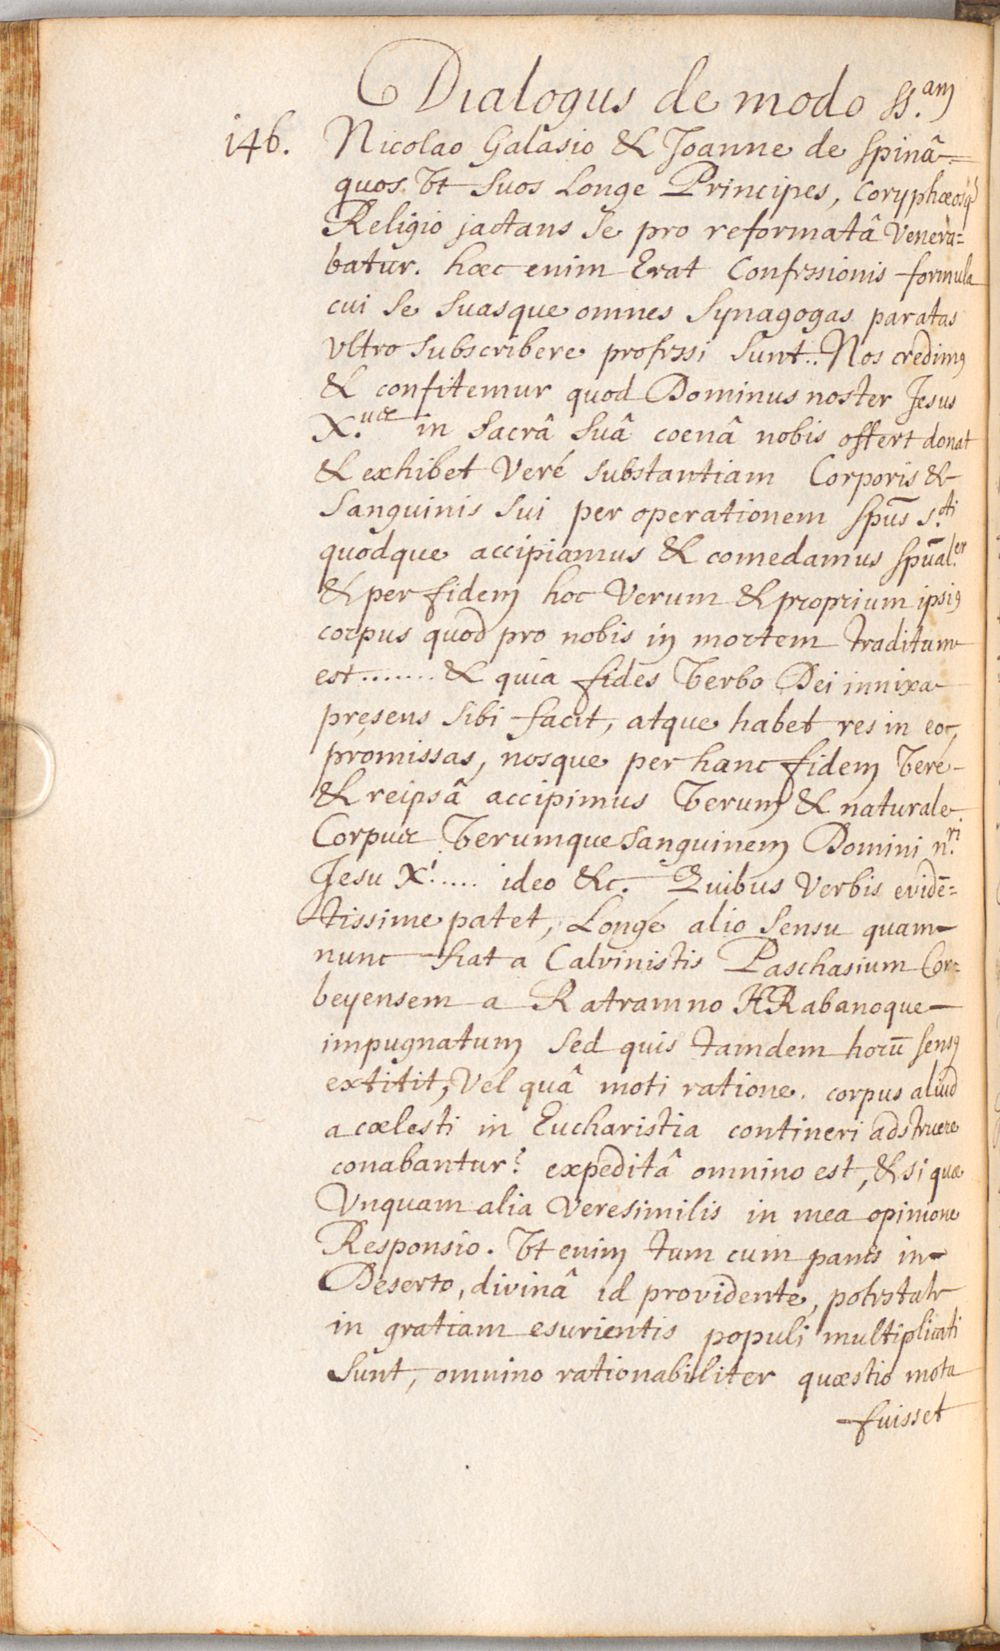 Dialogus de modo ss.am
146.
Nicolao Galasio & Joanne de Spinâ=
quos Vt suos Longe Principes, Coryphœosq́
Religio jactans se pro reformatâ Venera=
batur. hœc enim Erat Confessionis formula
cui se suasque omnes Synagogas paratas
Vltro subscribere professi sunt.. Nos credimꝰ
& confitemur quod Dominus noster Jesus
X.us in Sacrâ suâ coenâ nobis offert donat
& exhibet Veré substantiam Corporis &
Sanguinis sui per operationem Spūs S.cti
quodque accipiamus & comedamus Spūal.er
& per fidem hoc Verum & proprium ipsiꝰ
corpus quod pro nobis in mortem traditum
est....... & quia fides Verbo Dei innixa
pręsens sibi facit, atque habet res in eo
promissas, nosque per hanc fidem Veré
& reipsâ accipimus Verum & naturale
Corpus Verumque sanguinem Domini n.ri
Jesu X.i .... ideo &c. Quibus Verbis evidē=
tissime patet, Longé alio sensu quam
nunc fiat a Calvinistis Paschasium Cor=
beyensem a Ratramno HRabanoque
impugnatum sed quis tamdem horū sensꝰ
extitit, Vel quâ moti ratione corpus aliud
a cœlesti in Eucharistia contineri adstruere
conabantur? expeditâ omnino est, & si quœ
Vnquam alia Veresimilis in mea opinione
Responsio. Vt enim tum cum panes in
Deserto, divinâ id providente, potestate
in gratiam esurientis populi multiplicati
sunt, omnino rationabiliter quœstio mota
fuisset